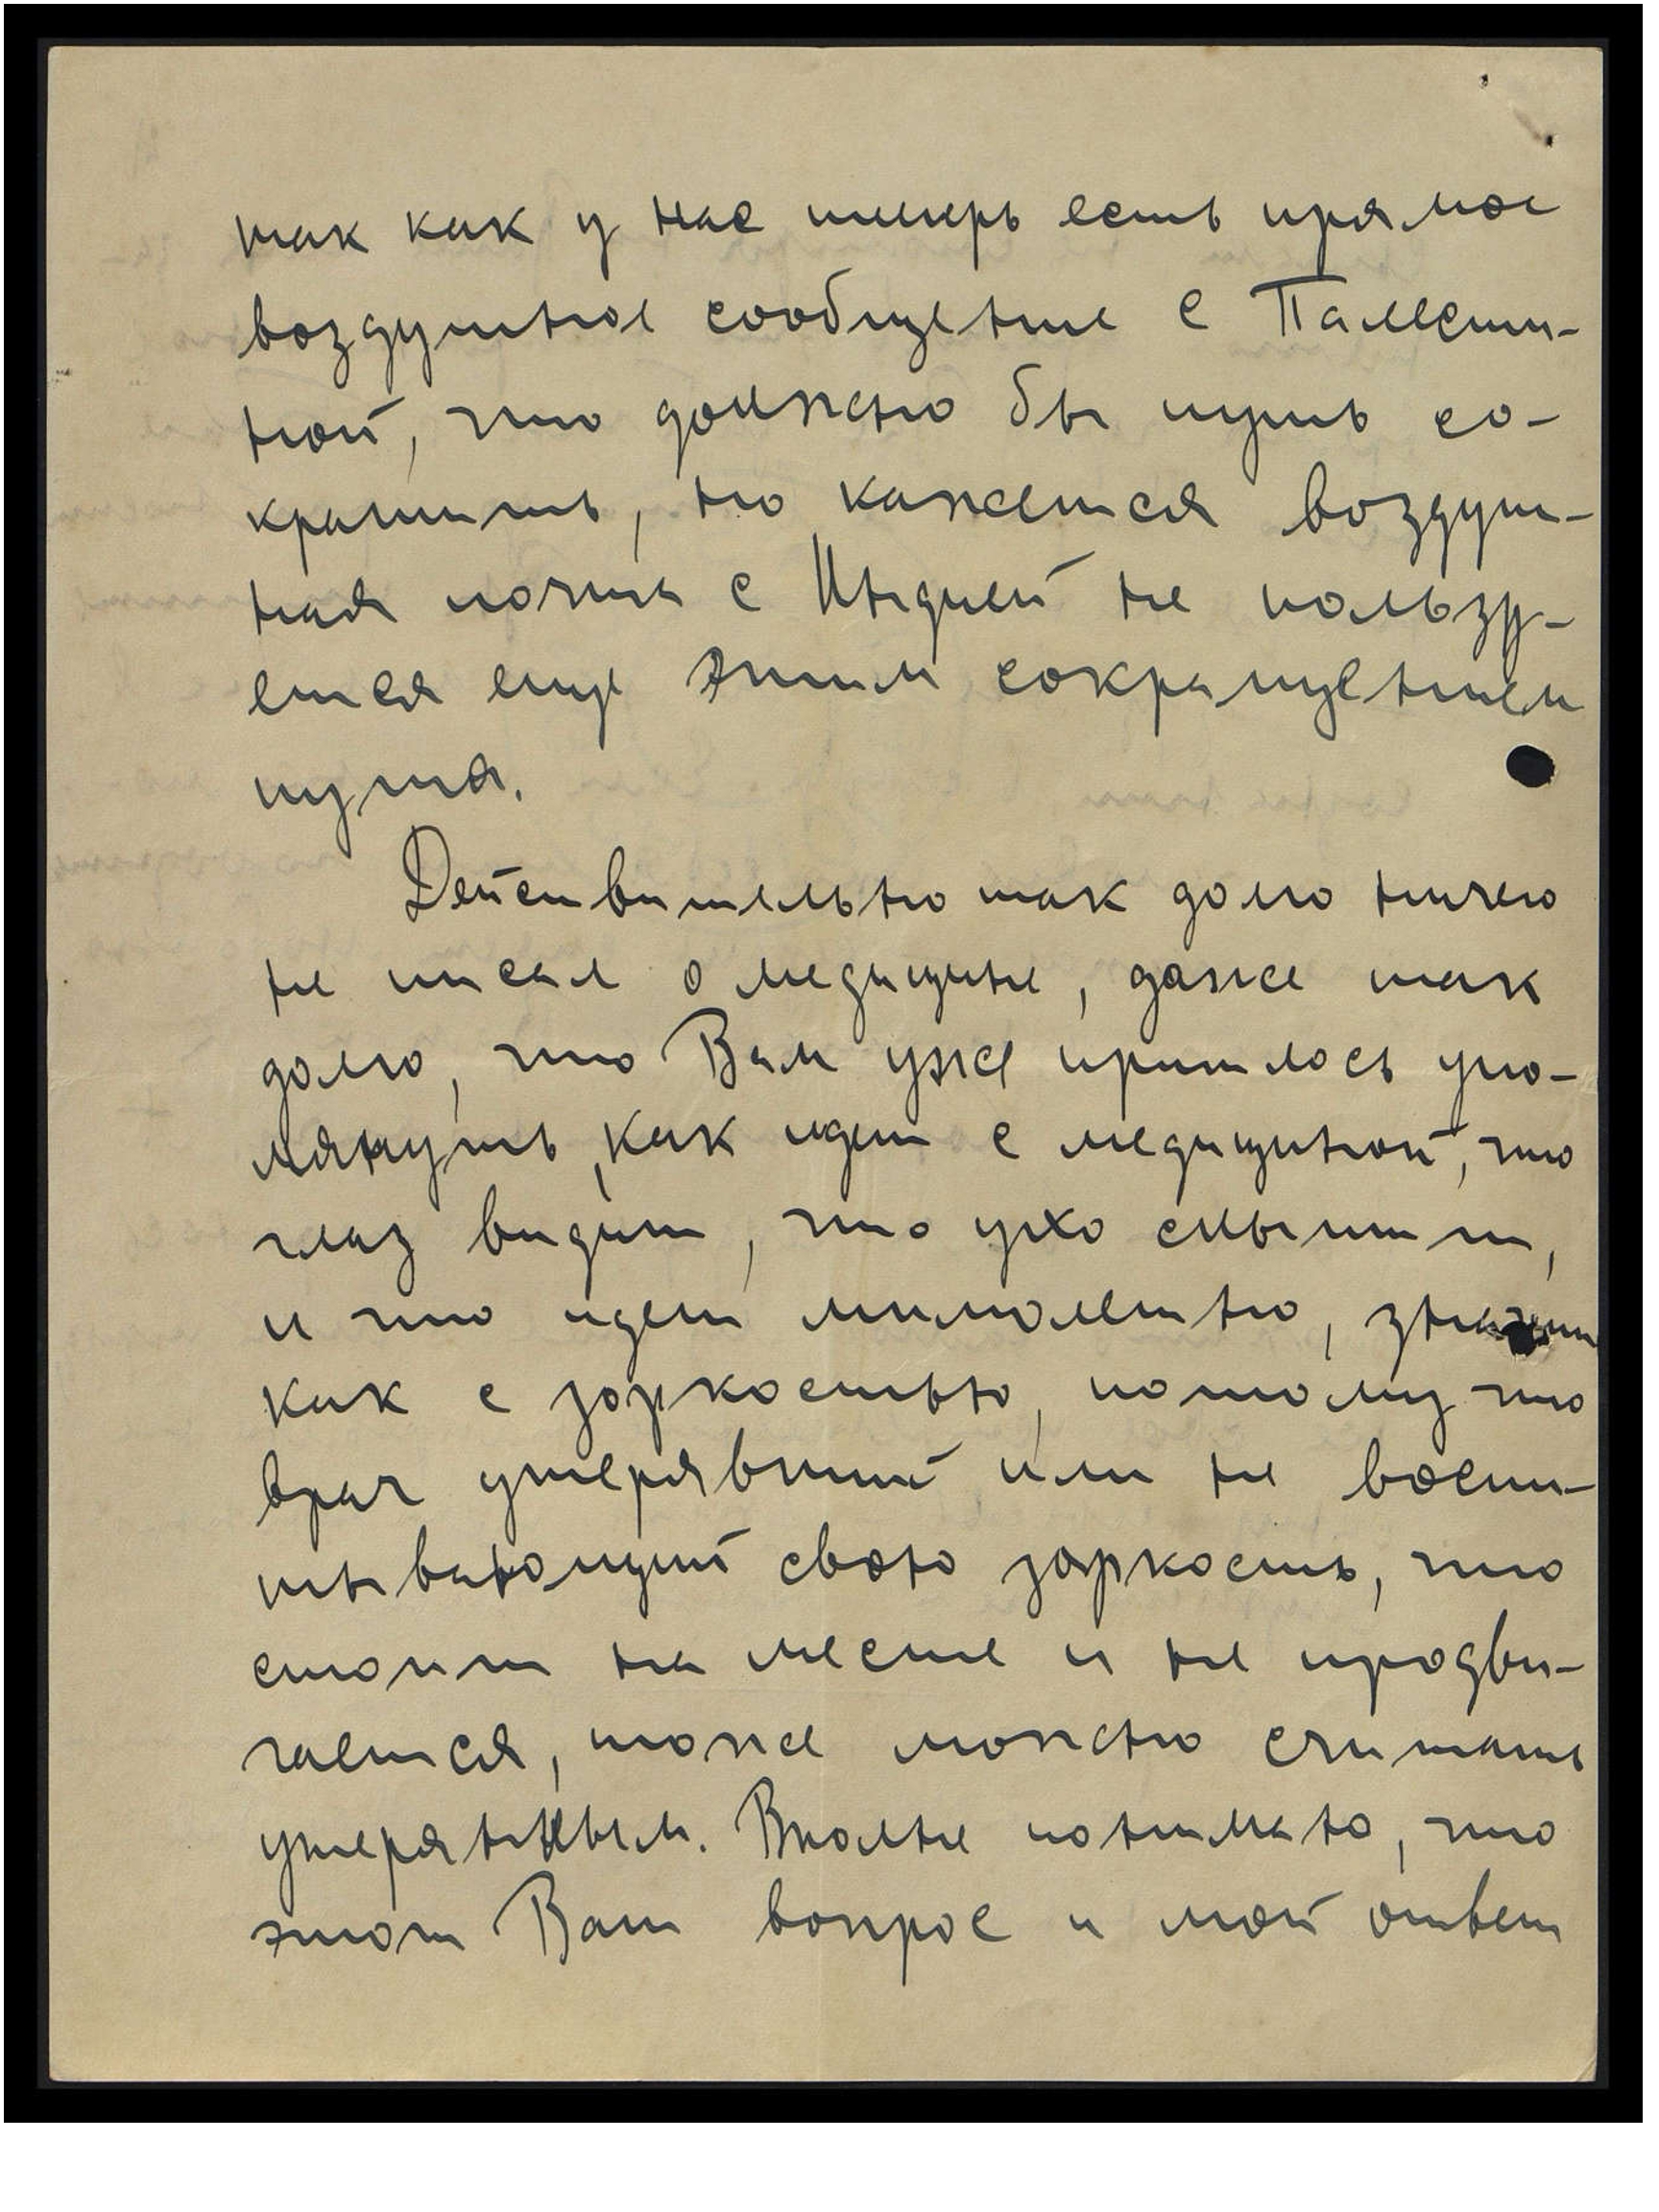 так как у нас теперь есть прямое
воздушное сообщение с Палести-
ной, что должно бы путь со-
кратить, но кажется воздуш-
ная почта с Индией не пользу-
ется еще этим сокращением
путя.
Действительно так долго ничего
не писал о медицине, даже так
долго, что Вам уже пришлось упо-
мянуть, как идет с медициной, что
глаз видит, что ухо слышит,
и что идет мимолетно, значит
как с зоркостью, потому что
врач утерявший или не воспи-
тывающий свою зоркость, что
стоит на месте и не продви-
гается, тоже можно считать
утерянным. Вполне понимаю, что
этот Ваш вопрос и мой ответ